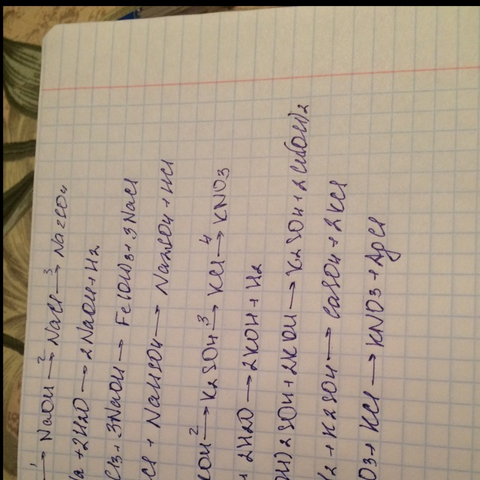 1→ NaOH 2→ NaCl 3→ Na2SO4
a + 2H2O → 2NaOH + H2
Cl3 + 3NaOH → Fe(OH)3 + 3NaCl
Cl + NaHSO4 → Na2SO4 + HCl
KOH 2→ K2SO4 3→ KCl 4→ KNO3
+ 2H2O → 2KOH + H2
OH)2SO4 + 2KOH → K2SO4 + 2Cu(OH)2
l2 + K2SO4 → CaSO4 + 2KCl
O3 + KCl → KNO3 + AgCl